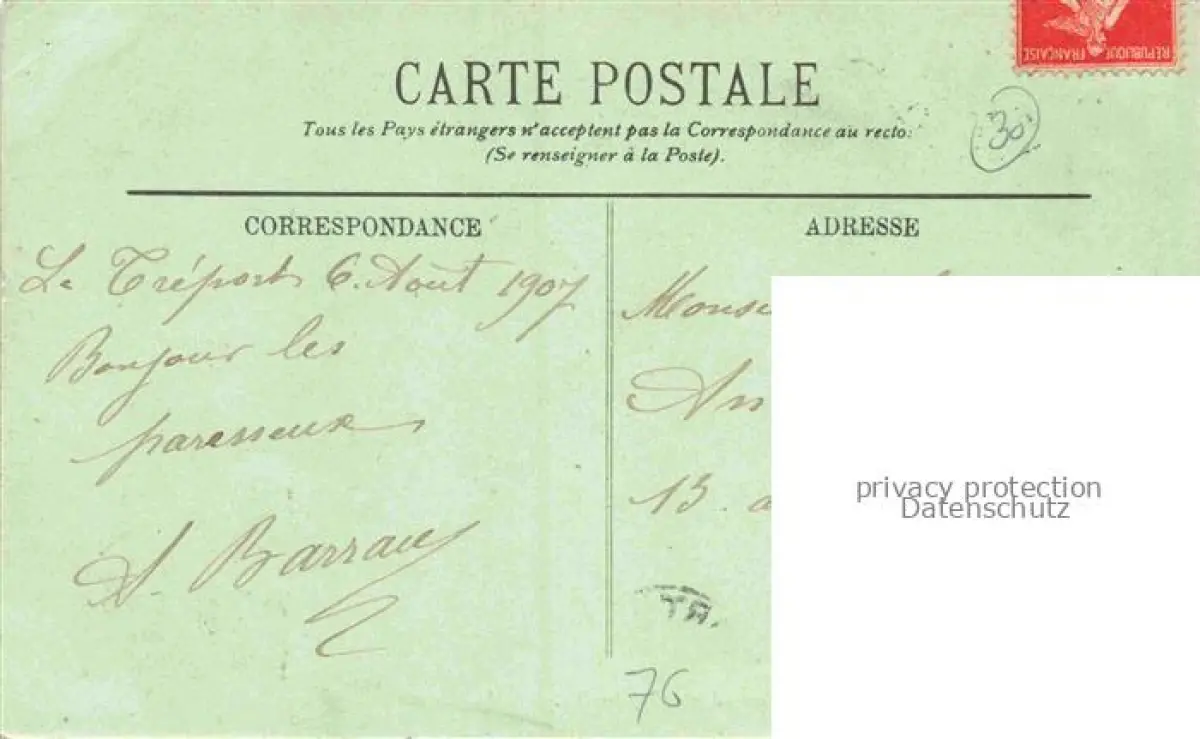 REPUBLIQUE FRANÇAISE
CARTE POSTALE
Tous les Pays étrangers n'acceptent pas la Correspondance au recto:
(Se renseigner à la Poste).
30
CORRESPONDANCE
ADRESSE
Le Tréport 6. Août 1907
Bonjour les
paresseux
Monsi
An
13. a
privacy protection
Datenschutz
TR.
76